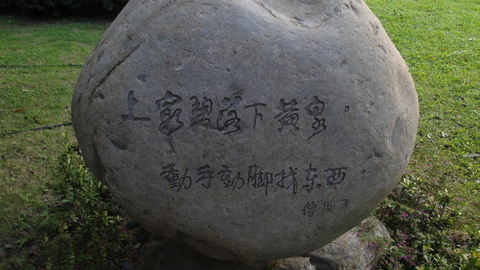 上窮碧落下黃泉。
動手動脚找东西。
傅斯年